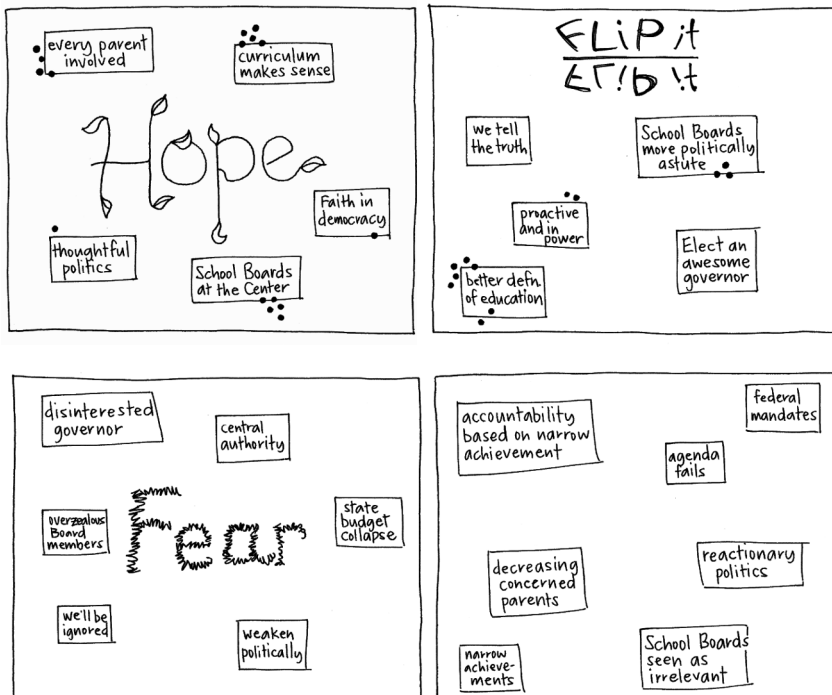 every parent
involved
curriculum
makes sense
Hope
Faith in
democracy
thoughtful
politics
School Boards
at the Center
FLiP it
FLiP it
we tell
the truth
School Boards
more politically
astute
proactive
and in
power
Elect an
awesome
governor
better defn.
of education
disinterested
governor
central
authority
overzealous
Board
members
Fear
state
budget
collapse
we'll be
ignored
weaken
politically
accountability
based on narrow
achievement
federal
mandates
agenda
fails
decreasing
concerned
parents
reactionary
politics
narrow
achieve-
ments
School Boards
seen as
irrelevant